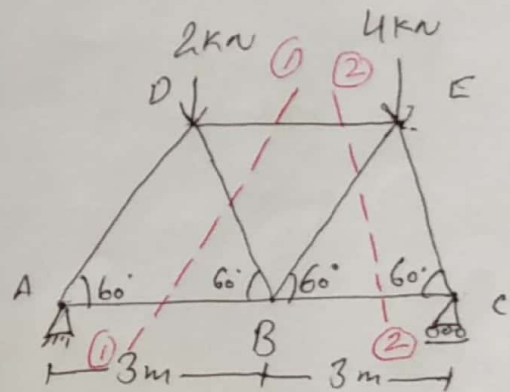 2KN ① ② 4KN
D E
A 60° 60° 60° 60° C
① B ②
3m 3m